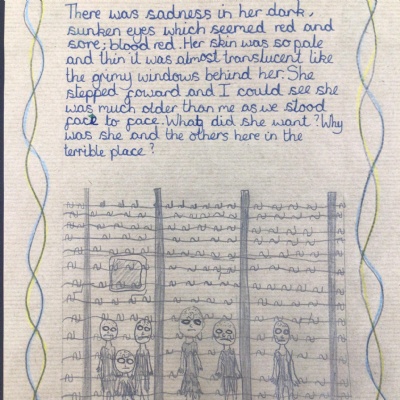 There was sadness in her dark,
sunken eyes which seemed red and
sore; blood red. Her skin was so pale
and thin it was almost translucent like
the grimy windows behind her. She
stepped foward and I could see she
was much older than me as we stood
face to face. What did she want? Why
was she and the others here in the
terrible place?